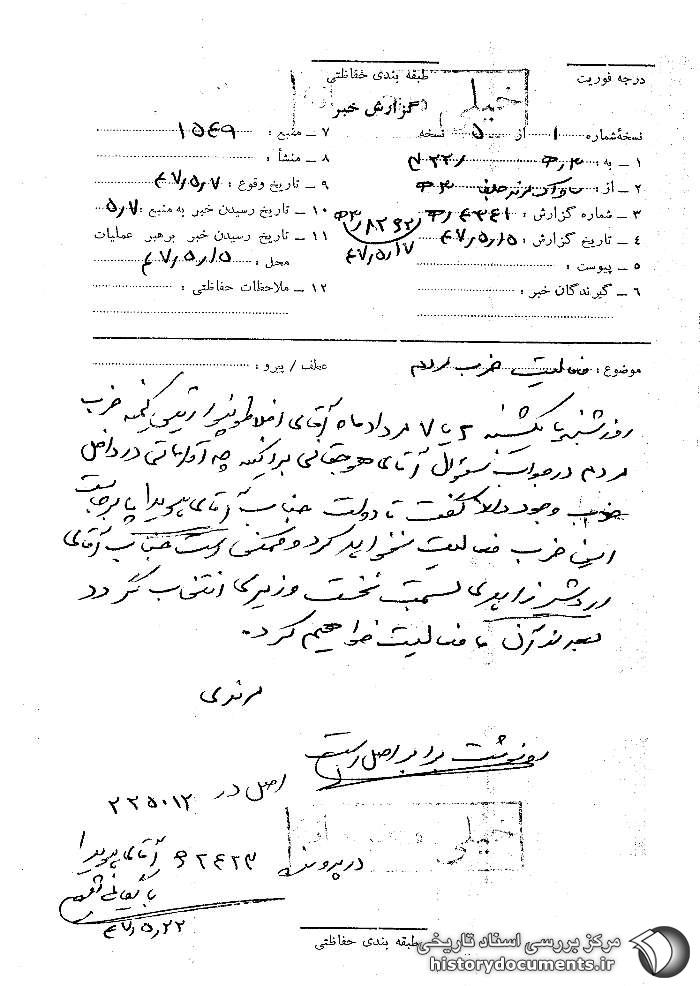 درجه فوریت
طبقه بندی حفاظتی
خیلی
گزارش خبر
نسخهٔ شماره ۱ از ۵ نسخه
۱ ـ به : ۳ه‍ ۳۳۱
۲ ـ از : ساواک ۳ه‍
۳ ـ شماره گزارش :
۴ ـ تاریخ گزارش : ۴۷٫۵٫۱۵
۵ ـ پیوست :
۶ ـ گیرندگان خبر :
۷ ـ منبع : ۱۵۴۹
۸ ـ منشأ :
۹ ـ تاریخ وقوع : ۴۷٫۵٫۷
۱۰ ـ تاریخ رسیدن خبر به منبع : ۵٫۷
۱۱ ـ تاریخ رسیدن خبر برهبر عملیات
محل : ۴۷٫۵٫۱۵
۱۲ ـ ملاحظات حفاظتی :
۴۷٫۵٫۱۷
موضوع : فعالیت حزب مردم
عطف / پیرو :
روز شنبه یا یکشنبه ۶ یا ۷ مرداد ماه آقای حزب
مردم در جواب سئوال آقای برای اینکه چه در داخل
حزب وجود دارد گفت تا دولت جناب آقای هویدا پا برجاست
این حزب فعالیت نخواهد کرد و ممکن است جناب آقای
اردشیر زاهدی بسمت نخست وزیری انتخاب گردد
بعد از آن ما فعالیت خواهیم کرد.
مرندی
رونوشت برابر اصل است
اصل در ۲۲۵۰۱۲
در پرونده ۹۲۶۲۳ آقای هویدا
بایگانی شود
۴۷٫۵٫۲۲
خیلی
طبقه بندی حفاظتی
مرکز بررسی اسناد تاریخی
historydocuments.ir